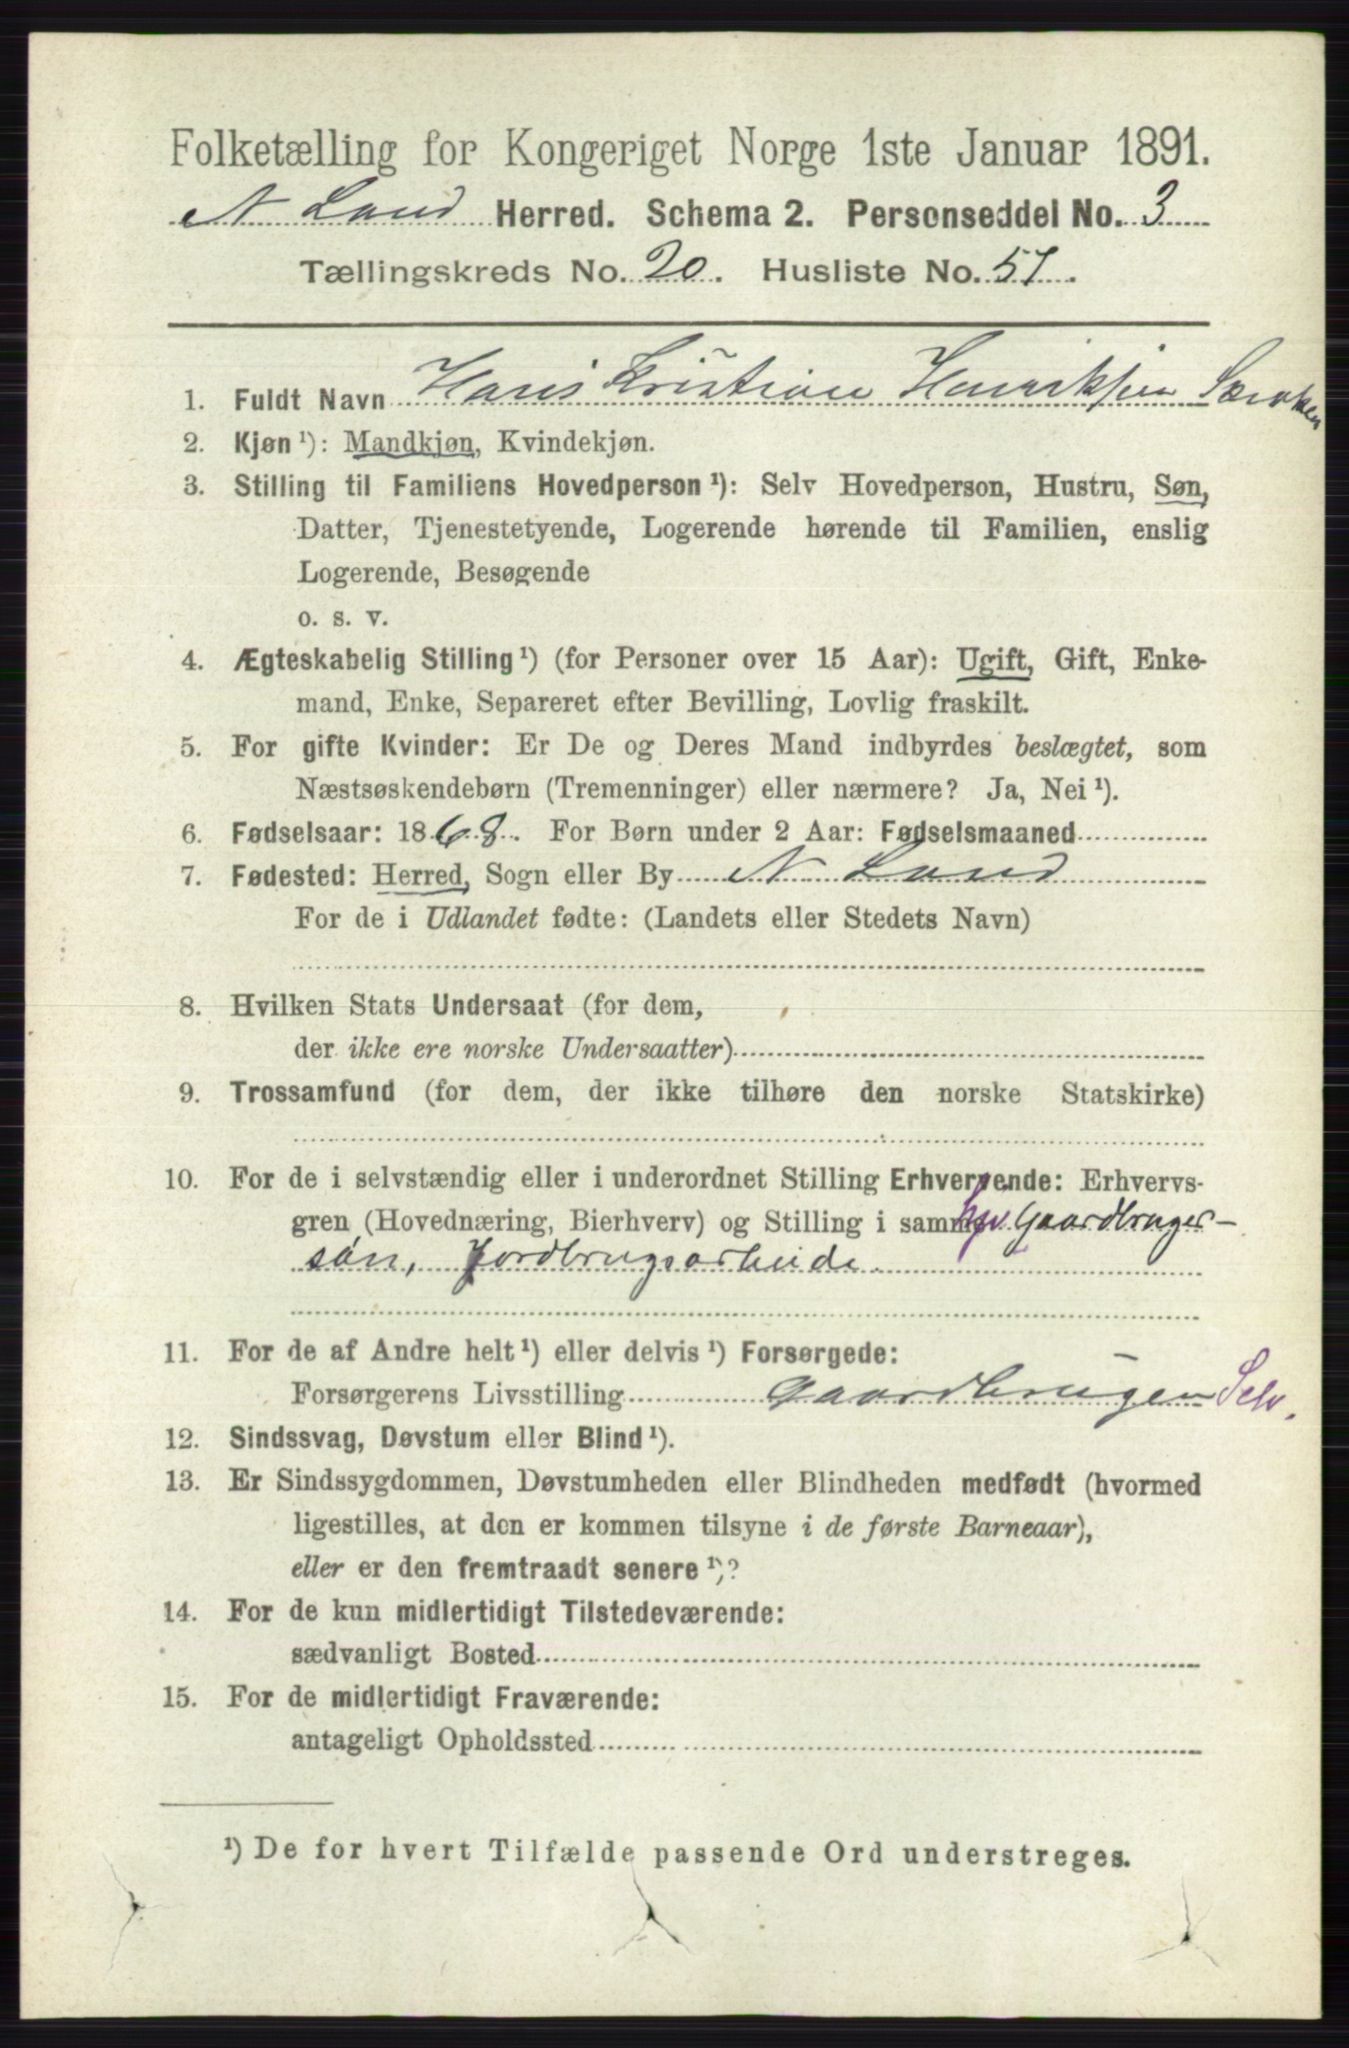 Folketælling for Kongeriget Norge 1ste Januar 1891.
N Land Herred. Schema 2. Personseddel No. 3
Tællingskreds No. 20. Husliste No. 51.
1. Fuldt Navn Hans Kristian Henriksen
2. Kjøn ¹): Mandkjøn, Kvindekjøn.
3. Stilling til Familiens Hovedperson ¹): Selv Hovedperson, Hustru, Søn,
Datter, Tjenestetyende, Logerende hørende til Familien, enslig
Logerende, Besøgende
o. s. v.
4. Ægteskabelig Stilling ¹) (for Personer over 15 Aar): Ugift, Gift, Enke-
mand, Enke, Separeret efter Bevilling, Lovlig fraskilt.
5. For gifte Kvinder: Er De og Deres Mand indbyrdes beslægtet, som
Næstsøskendebørn (Tremenninger) eller nærmere? Ja, Nei ¹).
6. Fødselsaar: 1868. For Børn under 2 Aar: Fødselsmaaned
7. Fødested: Herred, Sogn eller By N Land
For de i Udlandet fødte: (Landets eller Stedets Navn)
8. Hvilken Stats Undersaat (for dem,
der ikke ere norske Undersaatter)
9. Trossamfund (for dem, der ikke tilhøre den norske Statskirke)
10. For de i selvstændig eller i underordnet Stilling Erhvervende: Erhvervs-
gren (Hovednæring, Bierhverv) og Stilling i samme Gaardbruger-
søn, Jordbrugsarbeide.
11. For de af Andre helt ¹) eller delvis ¹) Forsørgede:
Forsørgerens Livsstilling Gaardbruger Selv.
12. Sindssvag, Døvstum eller Blind ¹).
13. Er Sindssygdommen, Døvstumheden eller Blindheden medfødt (hvormed
ligestilles, at den er kommen tilsyne i de første Barneaar),
eller er den fremtraadt senere ¹)?
14. For de kun midlertidigt Tilstedeværende:
sædvanligt Bosted
15. For de midlertidigt Fraværende:
antageligt Opholdssted
¹) De for hvert Tilfælde passende Ord understreges.